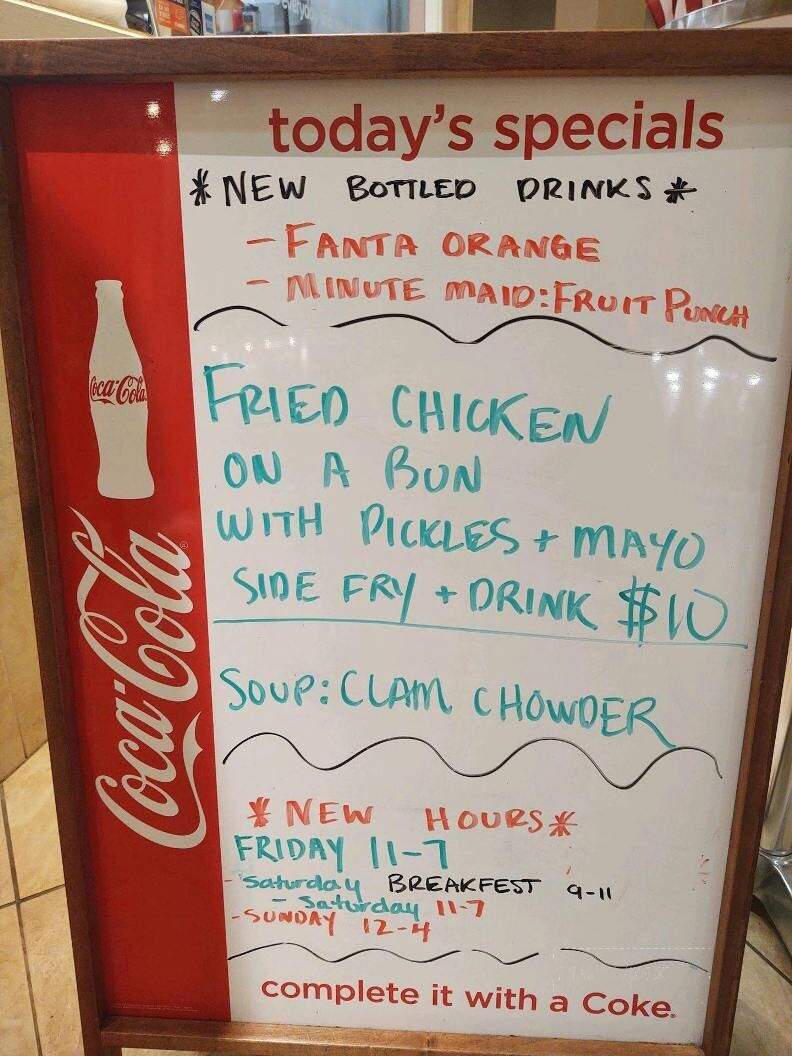 today's specials
* NEW BOTTLED DRINKS *
- FANTA ORANGE
- MINUTE MAID: FRUIT PUNCH
Coca-Cola
FRIED CHICKEN
ON A BUN
WITH PICKLES + MAYO
SIDE FRY + DRINK $10
Coca-Cola
SOUP: CLAM CHOWDER
* NEW HOURS *
FRIDAY 11-7
- Saturday BREAKFEST 9-11
- Saturday 11-7
- SUNDAY 12-4
complete it with a Coke.